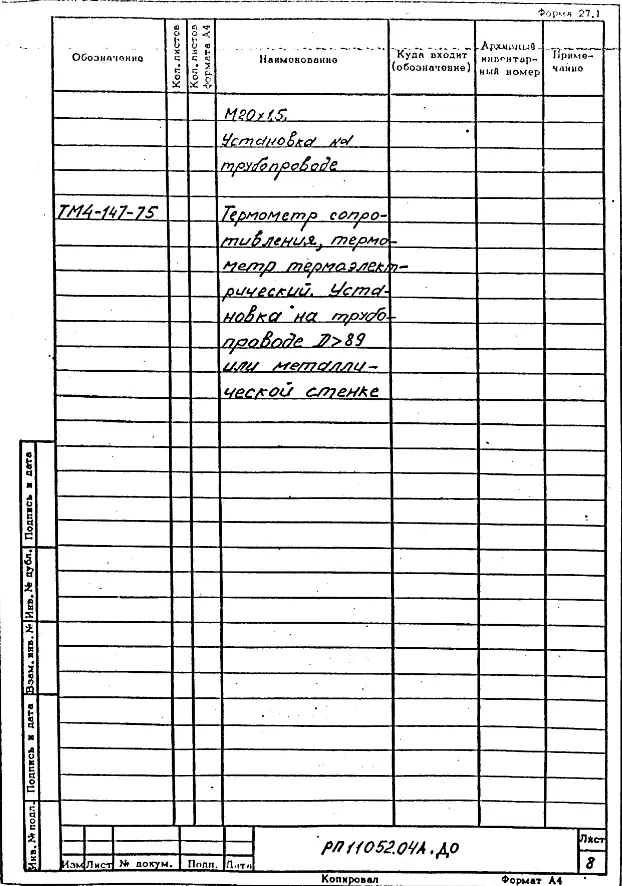 Форма 27.1
Обозначение
Кол. листов
Кол. листов формата А4
Наименование
Куда входит
(обозначение)
Архивный
инвентар-
ный номер
Приме-
чание
М20х1,5.
Установка на
трубопроводе
ТМ4-147-75
Термометр сопро-
тивления, термо-
метр термоэлект-
рический. Уста-
новка на трубо-
проводе D>89
или металли-
ческой стенке
Подпись и дата
Инв. № дубл.
Взам. инв. №
Подпись и дата
Инв. № подл.
Изм Лист № докум. Подп. Дата
РП11052.04А.ДО
Лист
8
Копировал Формат А4